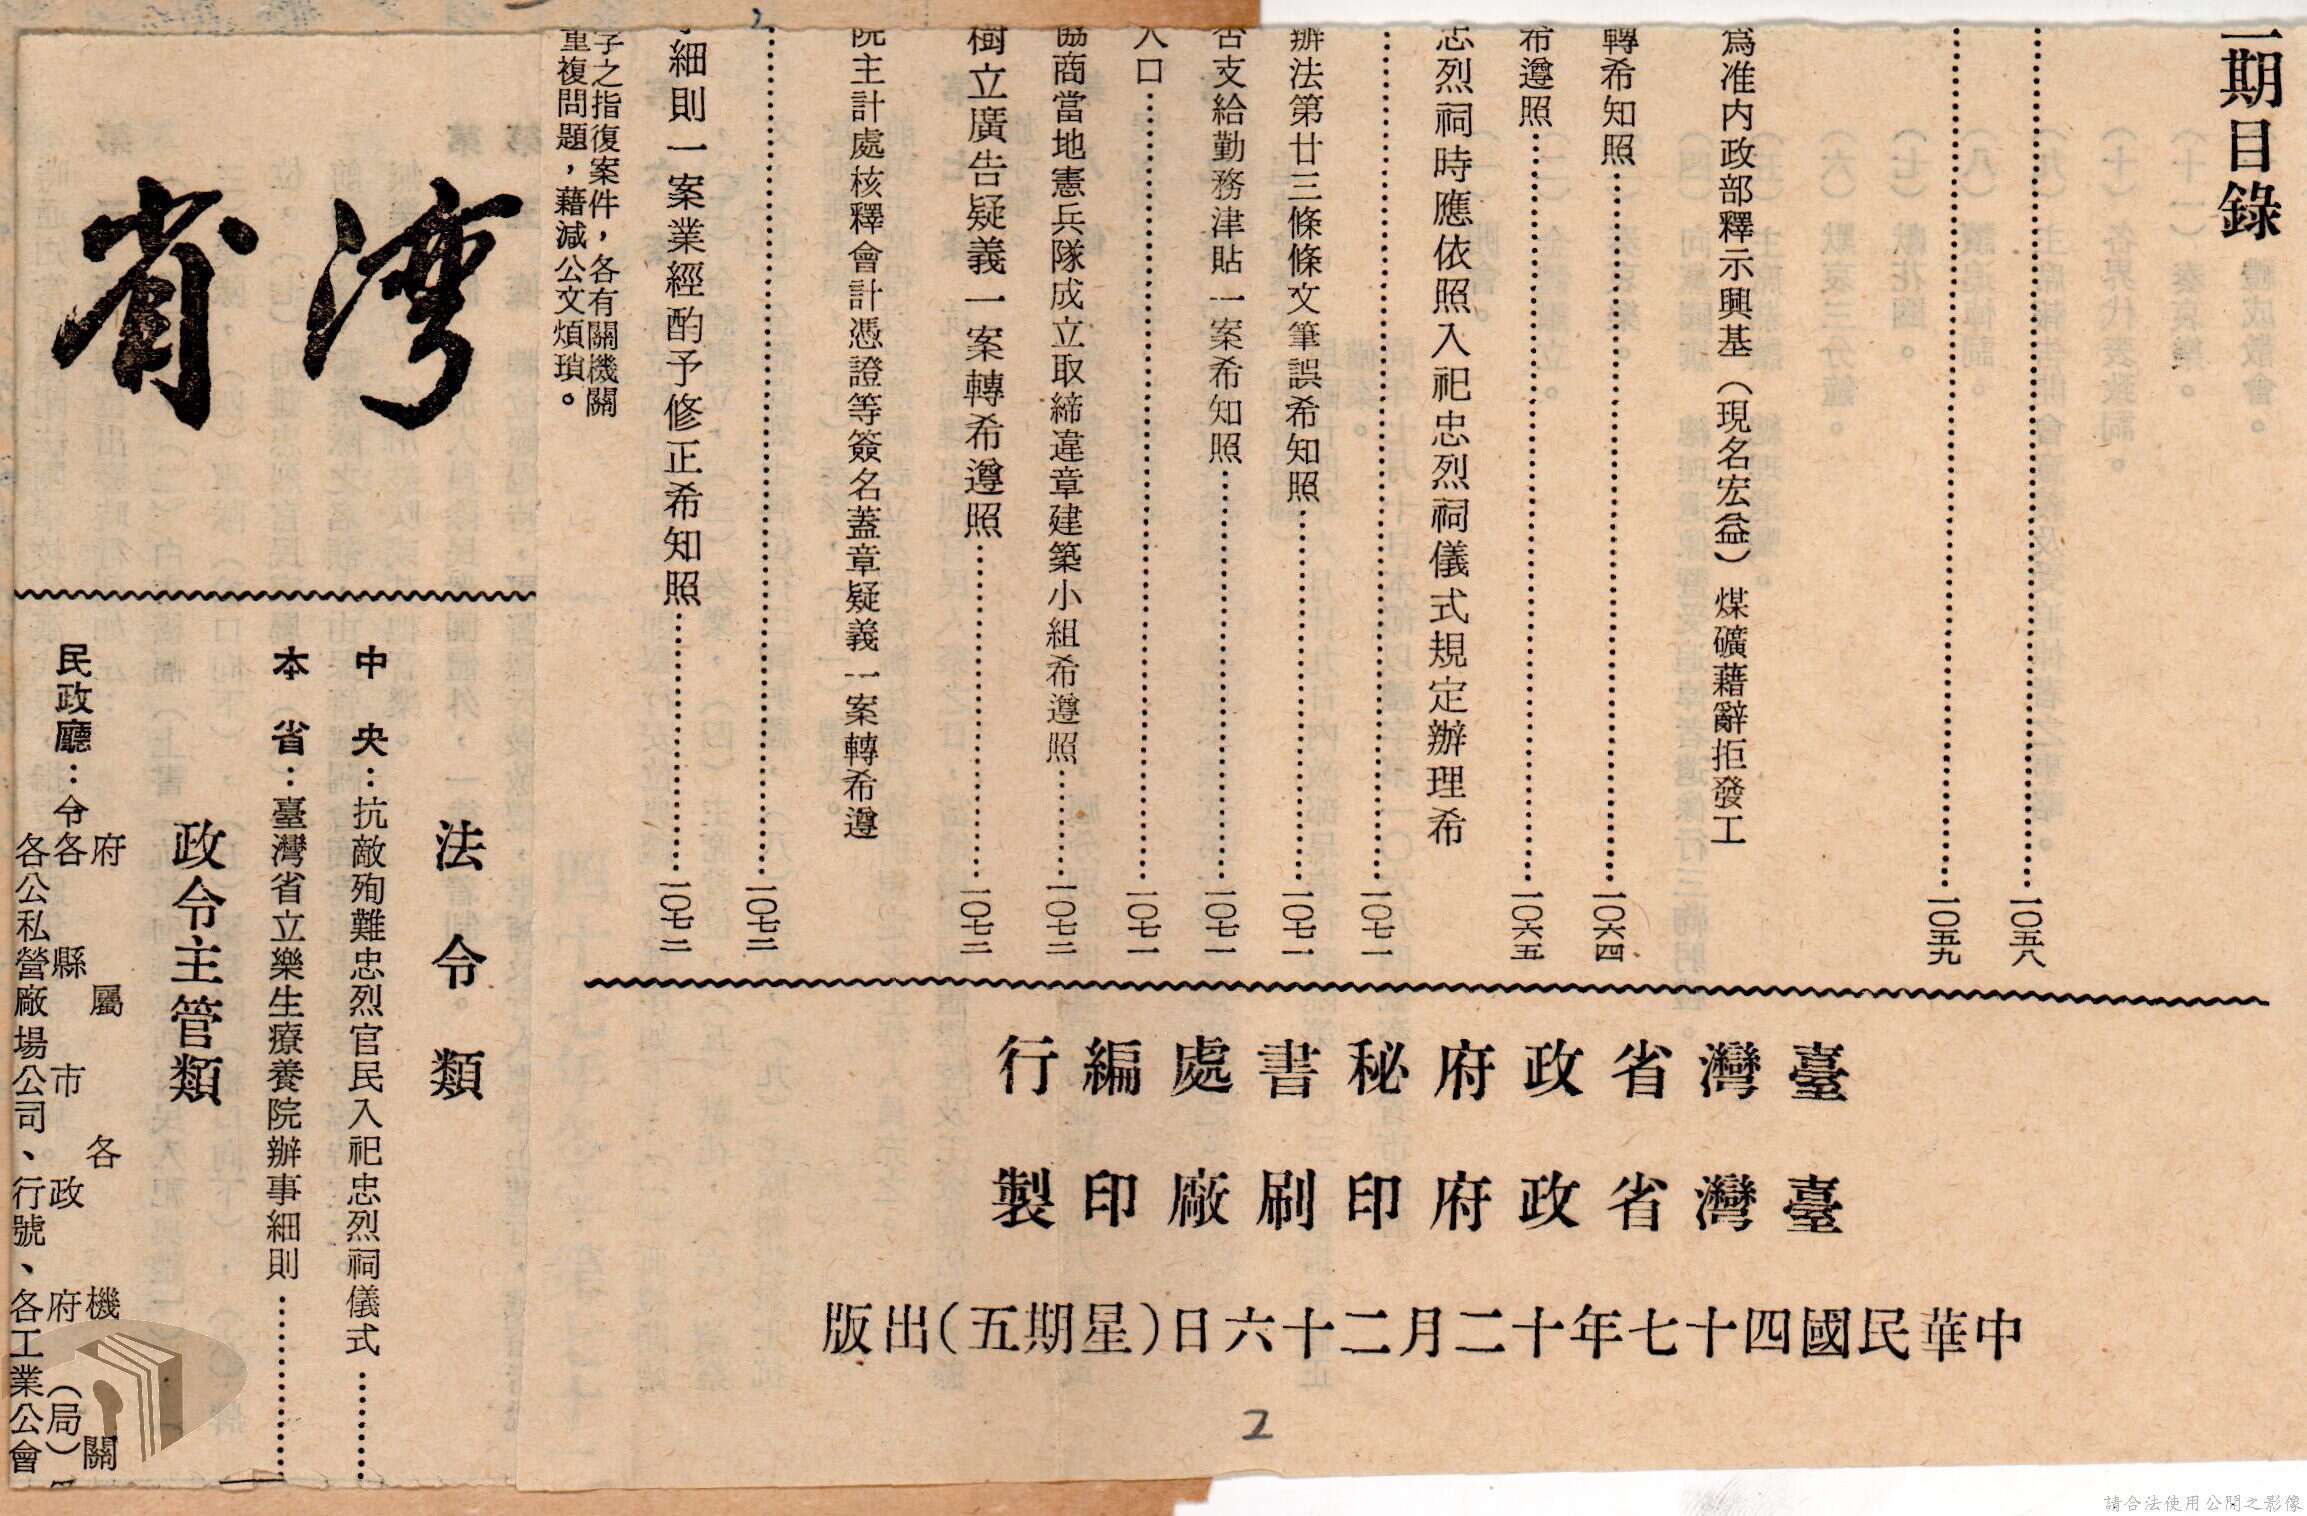 二期目錄
一〇五八
一〇五九
爲准内政部釋示興基（現名宏益）煤礦藉辭拒發工
轉希知照
一〇六四
希遵照
一〇六五
忠烈祠時應依照入祀忠烈祠儀式規定辦理希
一〇七一
辦法第廿三條條文筆誤希知照
一〇七一
否支給勤務津貼一案希知照
一〇七一
人口
一〇七一
協商當地憲兵隊成立取締違章建築小組希遵照
一〇七二
樹立廣告疑義一案轉希遵照
一〇七二
院主計處核釋會計憑證等簽名蓋章疑義一案轉希遵
一〇七二
細則一案業經酌予修正希知照
一〇七二
字之指復案件，各有關機關
重複問題，藉減公文煩瑣。
臺灣省政府秘書處編行
臺灣省政府印刷廠印製
中華民國四十七年十二月二十六日（星期五）出版
2
灣省
法令類
中央：抗敵殉難忠烈官民入祀忠烈祠儀式
本省：臺灣省立樂生療養院辦事細則
政令主管類
民政廳：令
府屬各機關
各縣市政府（局）
各公私營廠場公司、行號、各工業公會
請合法使用公開之影像